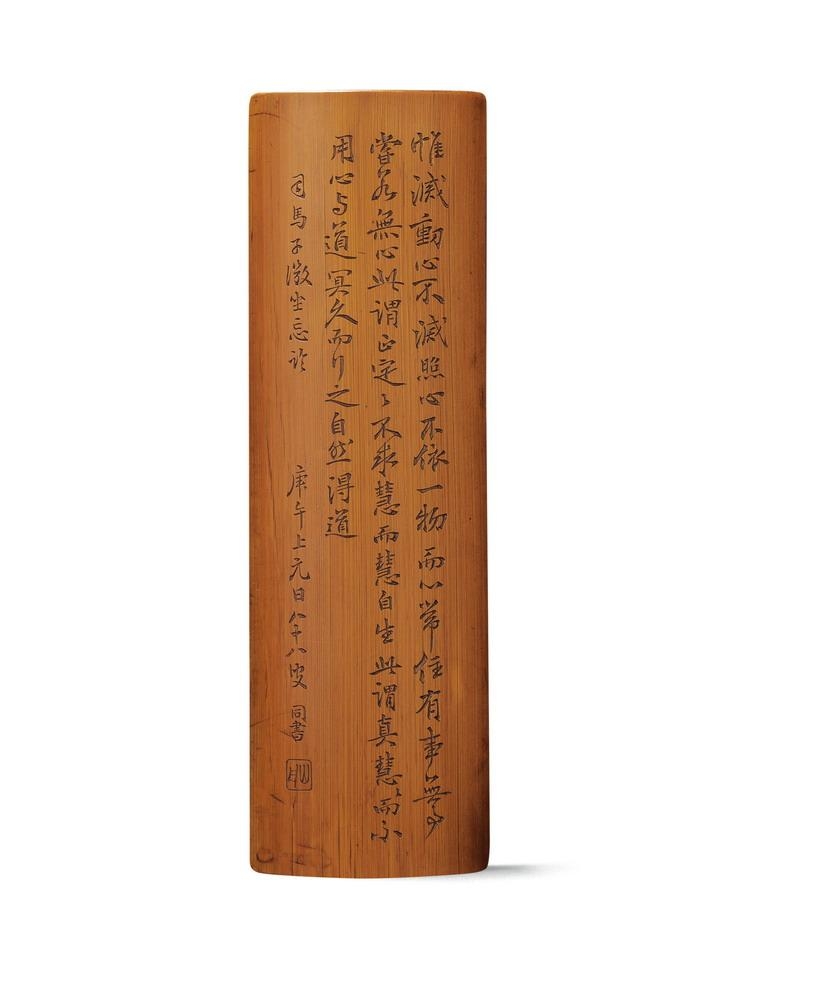 惟滅動心不滅照心不依一物而心常住有事無事
嘗若無心此謂正定〻不求慧而慧自生此謂真慧〻而不
用心与道冥久而行之自然得道
司馬子微坐忘論 庚午上元日八十八叟 同書 山舟